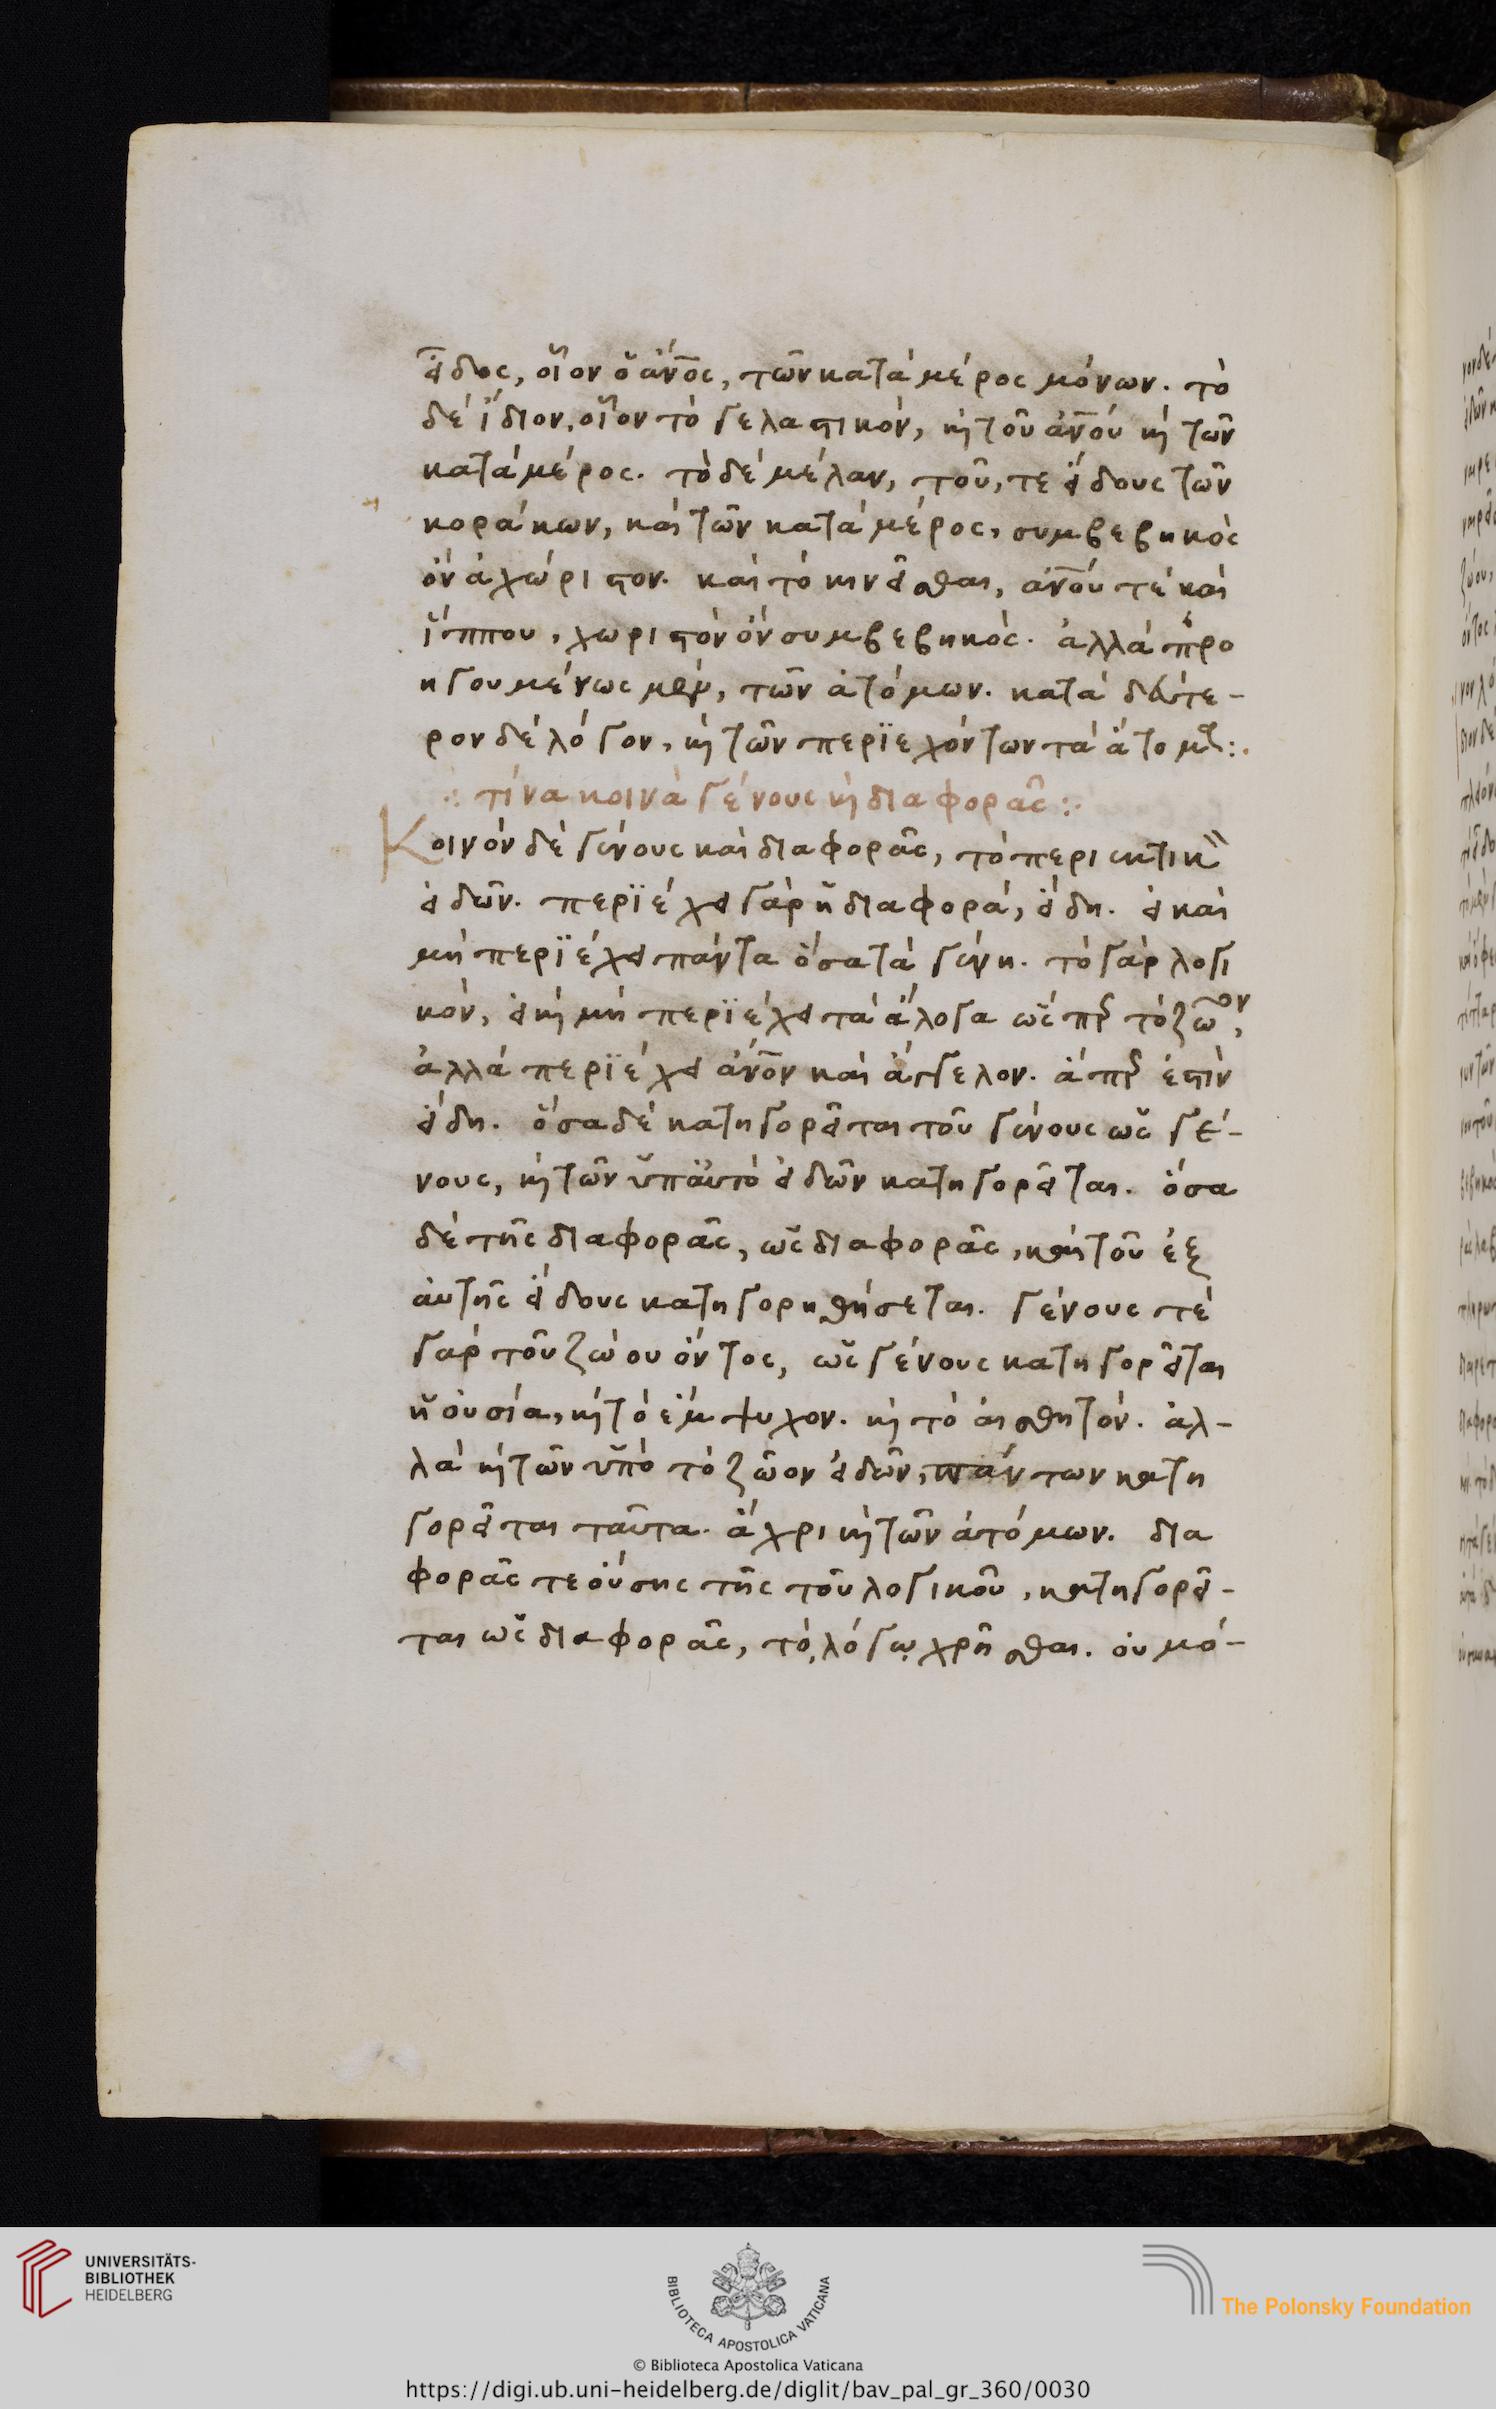 εἶδος, οἷον ὁ ἄν̅ος, τῶν κατὰ μέρος μόνων. τὸ
δὲ ἴδιον, οἷον τὸ γελαστικὸν, κὴ τοῦ ἀν̅ου κὴ τῶν
κατὰ μέρος. τὸ δὲ μέλαν, τοῦ, τε εἴδους τῶν
κοράκων, καὶ τῶν κατὰ μέρος, συμβεβηκὸς
ὂν ἀχώριστον. καὶ τὸ κινεῖσθαι, ἀν̅ου τὲ καὶ
ἵππου, χωριστὸν ὂν συμβεβηκός. ἀλλὰ προ
ηγουμένως μὲν, τῶν ἀτόμων. κατὰ δεύτε-
ρον δὲ λόγον, κὴ τῶν περϊεχόντων τὰ ἄτομα:.
∴ τίνα κοινὰ γένους κὴ διαφορᾶς:.
Κοινὸν δὲ γένους καὶ διαφορᾶς, τὸ περιεκτικὸν
εἰδῶν. περϊέχει γὰρ ἡ διαφορά, εἴδη. εἰ καὶ
μὴ περϊέχει πάντα ὅσα τὰ γένη. τὸ γὰρ λογι
κὸν, εἰ κὴ μὴ περϊέχει τὰ ἄλογα ὥσπερ τὸ ζῶον,
ἀλλὰ περϊέχει ἄν̅ον καὶ ἄγγελον. ἅπερ ἐστὶν
εἴδη. ὅσα δὲ κατηγορεῖται τοῦ γένους ὡς γέ-
νους, κὴ τῶν ὑπ' αὐτὸ εἰδῶν κατηγορεῖται. ὅσα
δὲ τῆς διαφορᾶς, ὡς διαφορᾶς, καὶ τοῦ ἐξ
αὐτῆς εἴδους κατηγορηθήσεται. γένους τὲ
γὰρ τοῦ ζώου ὄντος, ὡς γένους κατηγορεῖται
ἡ οὐσία, κὴ τὸ ἔμψυχον. κὴ τὸ αἰσθητόν. ἀλ-
λὰ κὴ τῶν ὑπὸ τὸ ζῶον εἰδῶν, πάντων κατη
γορεῖται ταῦτα. ἄχρι κὴ τῶν ἀτόμων. δια
φορᾶς τε οὔσης τῆς τοῦ λογικοῦ, κατηγορεῖ-
ται ὡς διαφορᾶς, τὸ, λόγῳ χρῆσθαι. οὐ μό-
UNIVERSITÄTS-
BIBLIOTHEK
HEIDELBERG
BIBLIOTECA APOSTOLICA VATICANA
The Polonsky Foundation
© Biblioteca Apostolica Vaticana
https://digi.ub.uni-heidelberg.de/diglit/bav_pal_gr_360/0030